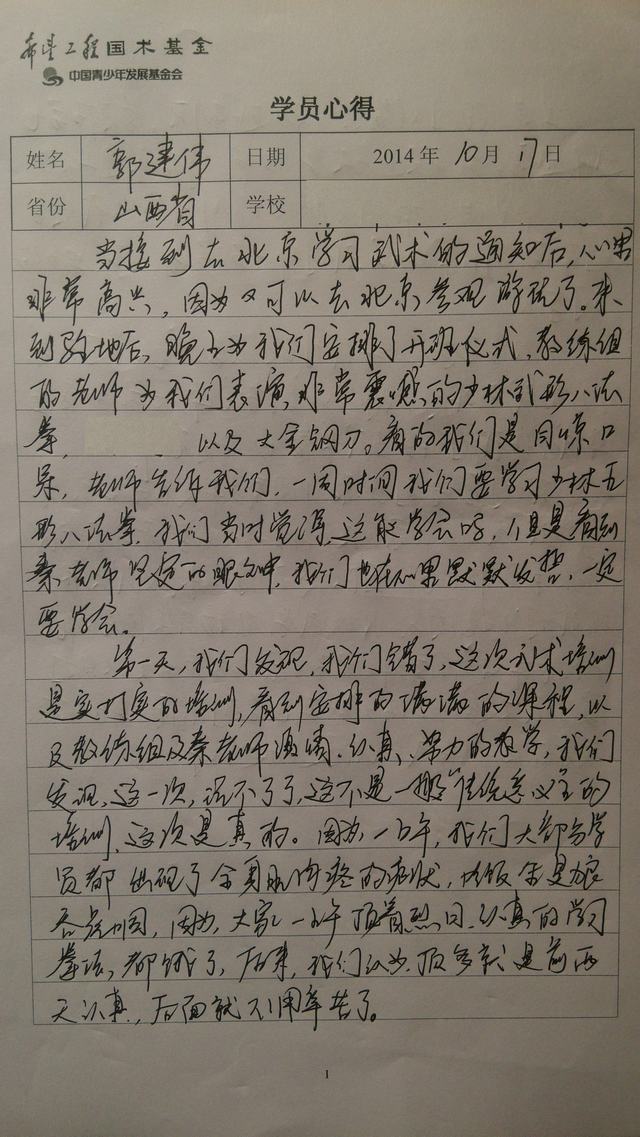 希望工程国术基金
中国青少年发展基金会
学员心得
姓名 郭建伟 日期 2014年10月17日
省份 山西省 学校
当接到去北京学习武术的通知后,心里
非常高兴,因为又可以去北京参观游玩了。来
到驻地后,晚上为我们安排了开班仪式,教练组
的老师为我们表演非常震憾的少林五形八法
拳, 以及大金钢刀。看的我们是目惊口
呆,老师告诉我们,一周时间我们要学习少林五
形八法拳,我们当时觉得,这能学会吗,但是看到
秦老师坚定的眼神,我们也在心里默默发誓,一定
要学会。
第一天,我们发现,我们错了,这次武术培训
是实打实的培训,看到安排的满满的课程,以
及教练组及秦老师激情、认真、努力的教学,我们
发现,这一次,混不了了,这不是一般"传统意义上的
培训,这次是真的。因为,一上午,我们大部分学
员都出现了全身肌肉疼的症状,吃饭全是狼
吞虎咽,因为,大家一上午顶着烈日,认真的学习
拳法,都饿了,后来,我们认为,顶多就是前两
天认真,后面就不用辛苦了。
1